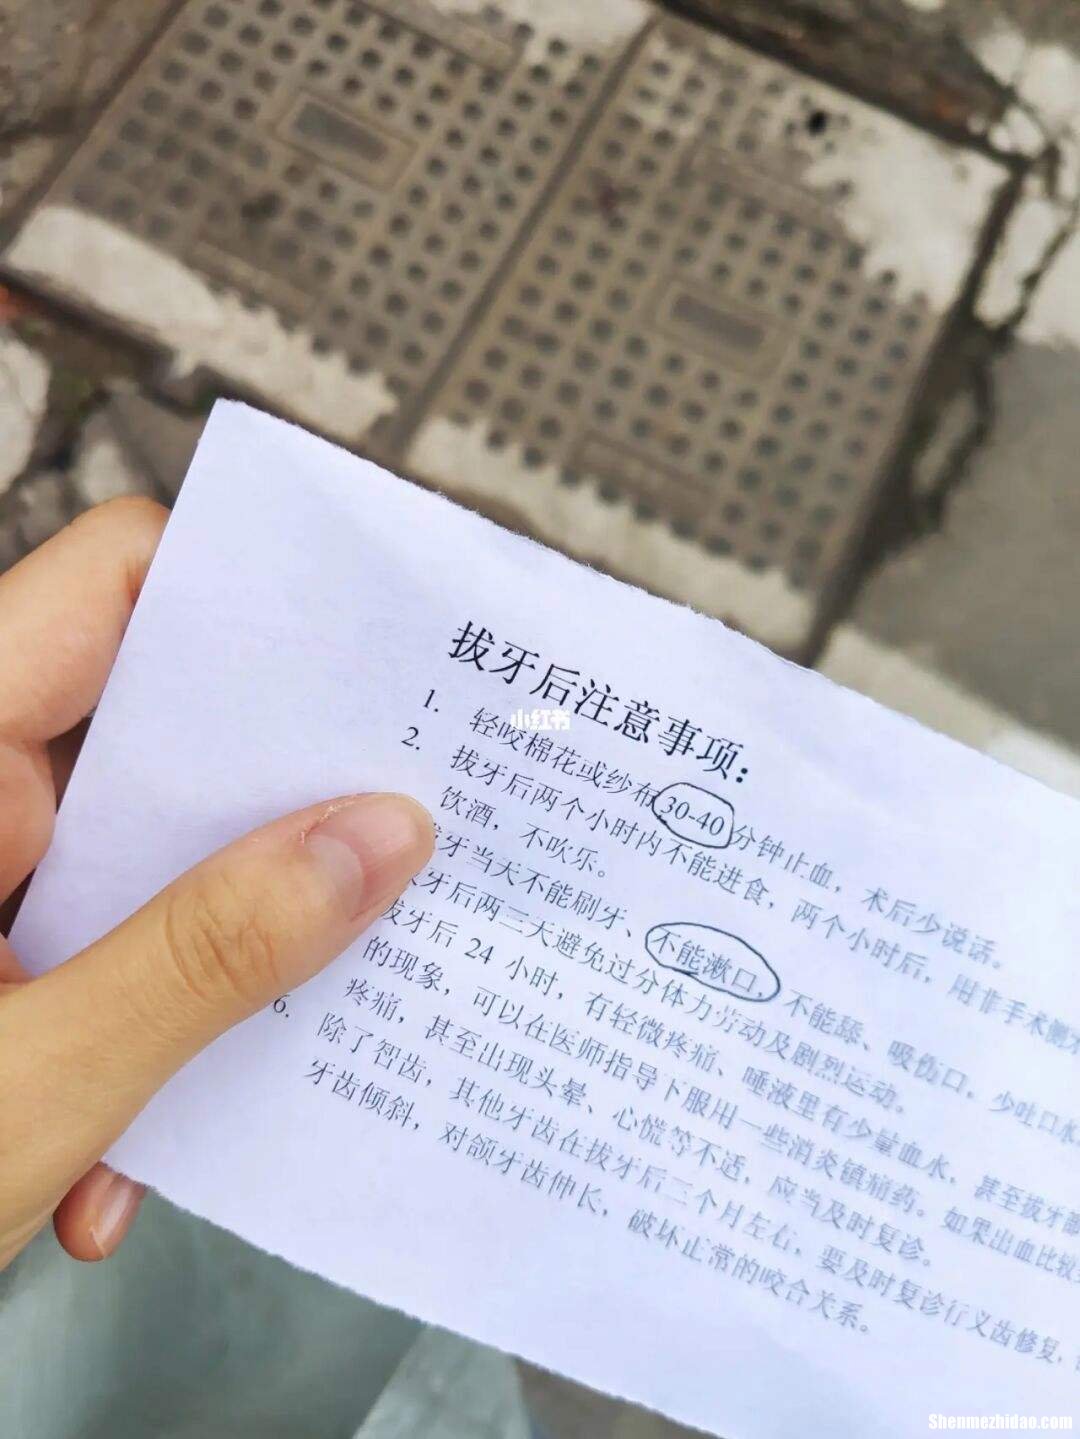 拔牙后注意事项：
1. 轻咬棉花或纱布30-40分钟止血，术后少说话。
2. 拔牙后两个小时内不能进食，两个小时后，用非手术侧
饮酒，不吹乐。
牙当天不能刷牙、不能漱口，不能舔、吸伤口，少吐口水
牙后两三天避免过分体力劳动及剧烈运动。
拔牙后 24 小时，有轻微疼痛、唾液里有少量血水，甚至拔牙
的现象，可以在医师指导下服用一些消炎镇痛药。如果出血比较
疼痛，甚至出现头晕、心慌等不适，应当及时复诊。
6. 除了智齿，其他牙齿在拔牙后三个月左右，要及时复诊行义齿修复，
牙齿倾斜，对颌牙齿伸长，破坏正常的咬合关系。
小红书
Shenmezhidao.com